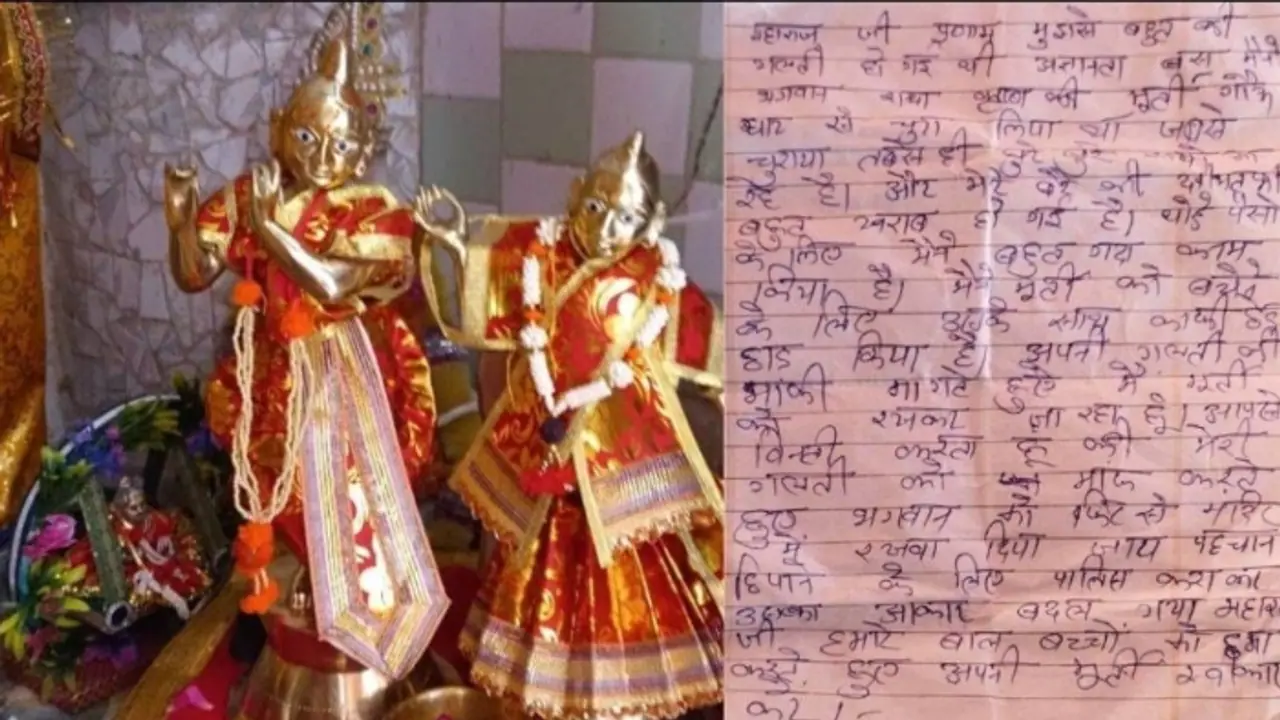 महाराज जी प्रणाम मुझसे बहुत बडी
गलती हो गई थी अज्ञानता बस मैने
भगवान राधा कृष्ण की मूर्ती गौघाट
से चुरा लिया था जबसे
चुराया तबसे ही बुरे
रहे है। और मेरे बेटे की तबीयत भी
बहुत खराब हो गई है। थोडे पैसो
के लिए मैने बहुत गन्दा काम
किया है। मैने मूर्ती को बेचने
के लिए उसके साथ काफी छेड़
छाड किया है। अपनी गलती की
माफी मागते हुए मै मूर्ती
को रखकर जा रहा हूं। आपसे
विनती करता हू की मेरी
गलती को माफ करते
हुए भगवान को फिर से मंदिर
में रखवा दिया जाय पहचान
छिपाने के लिए पालिस कराकर
उसका आकार बदल गया महाराज
जी हमारे बाल बच्चो को क्षमा
करते हुए अपनी मूर्ती स्वीकार
करे।